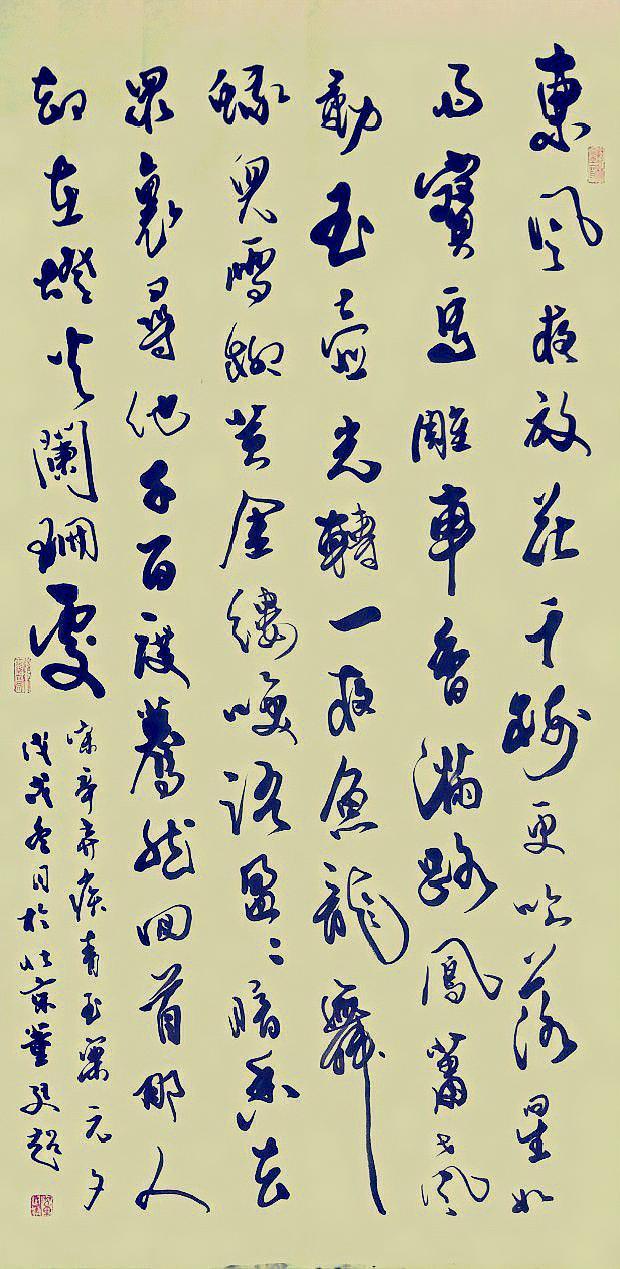 東風夜放花千樹更吹落星如
雨寶馬雕車香滿路鳳簫聲
動玉壺光轉一夜魚龍舞
蛾兒雪柳黃金縷笑語盈盈暗香去
眾裏尋他千百度驀然回首那人
卻在燈火闌珊處
宋辛棄疾青玉案元夕
戊戌冬月於北京董超